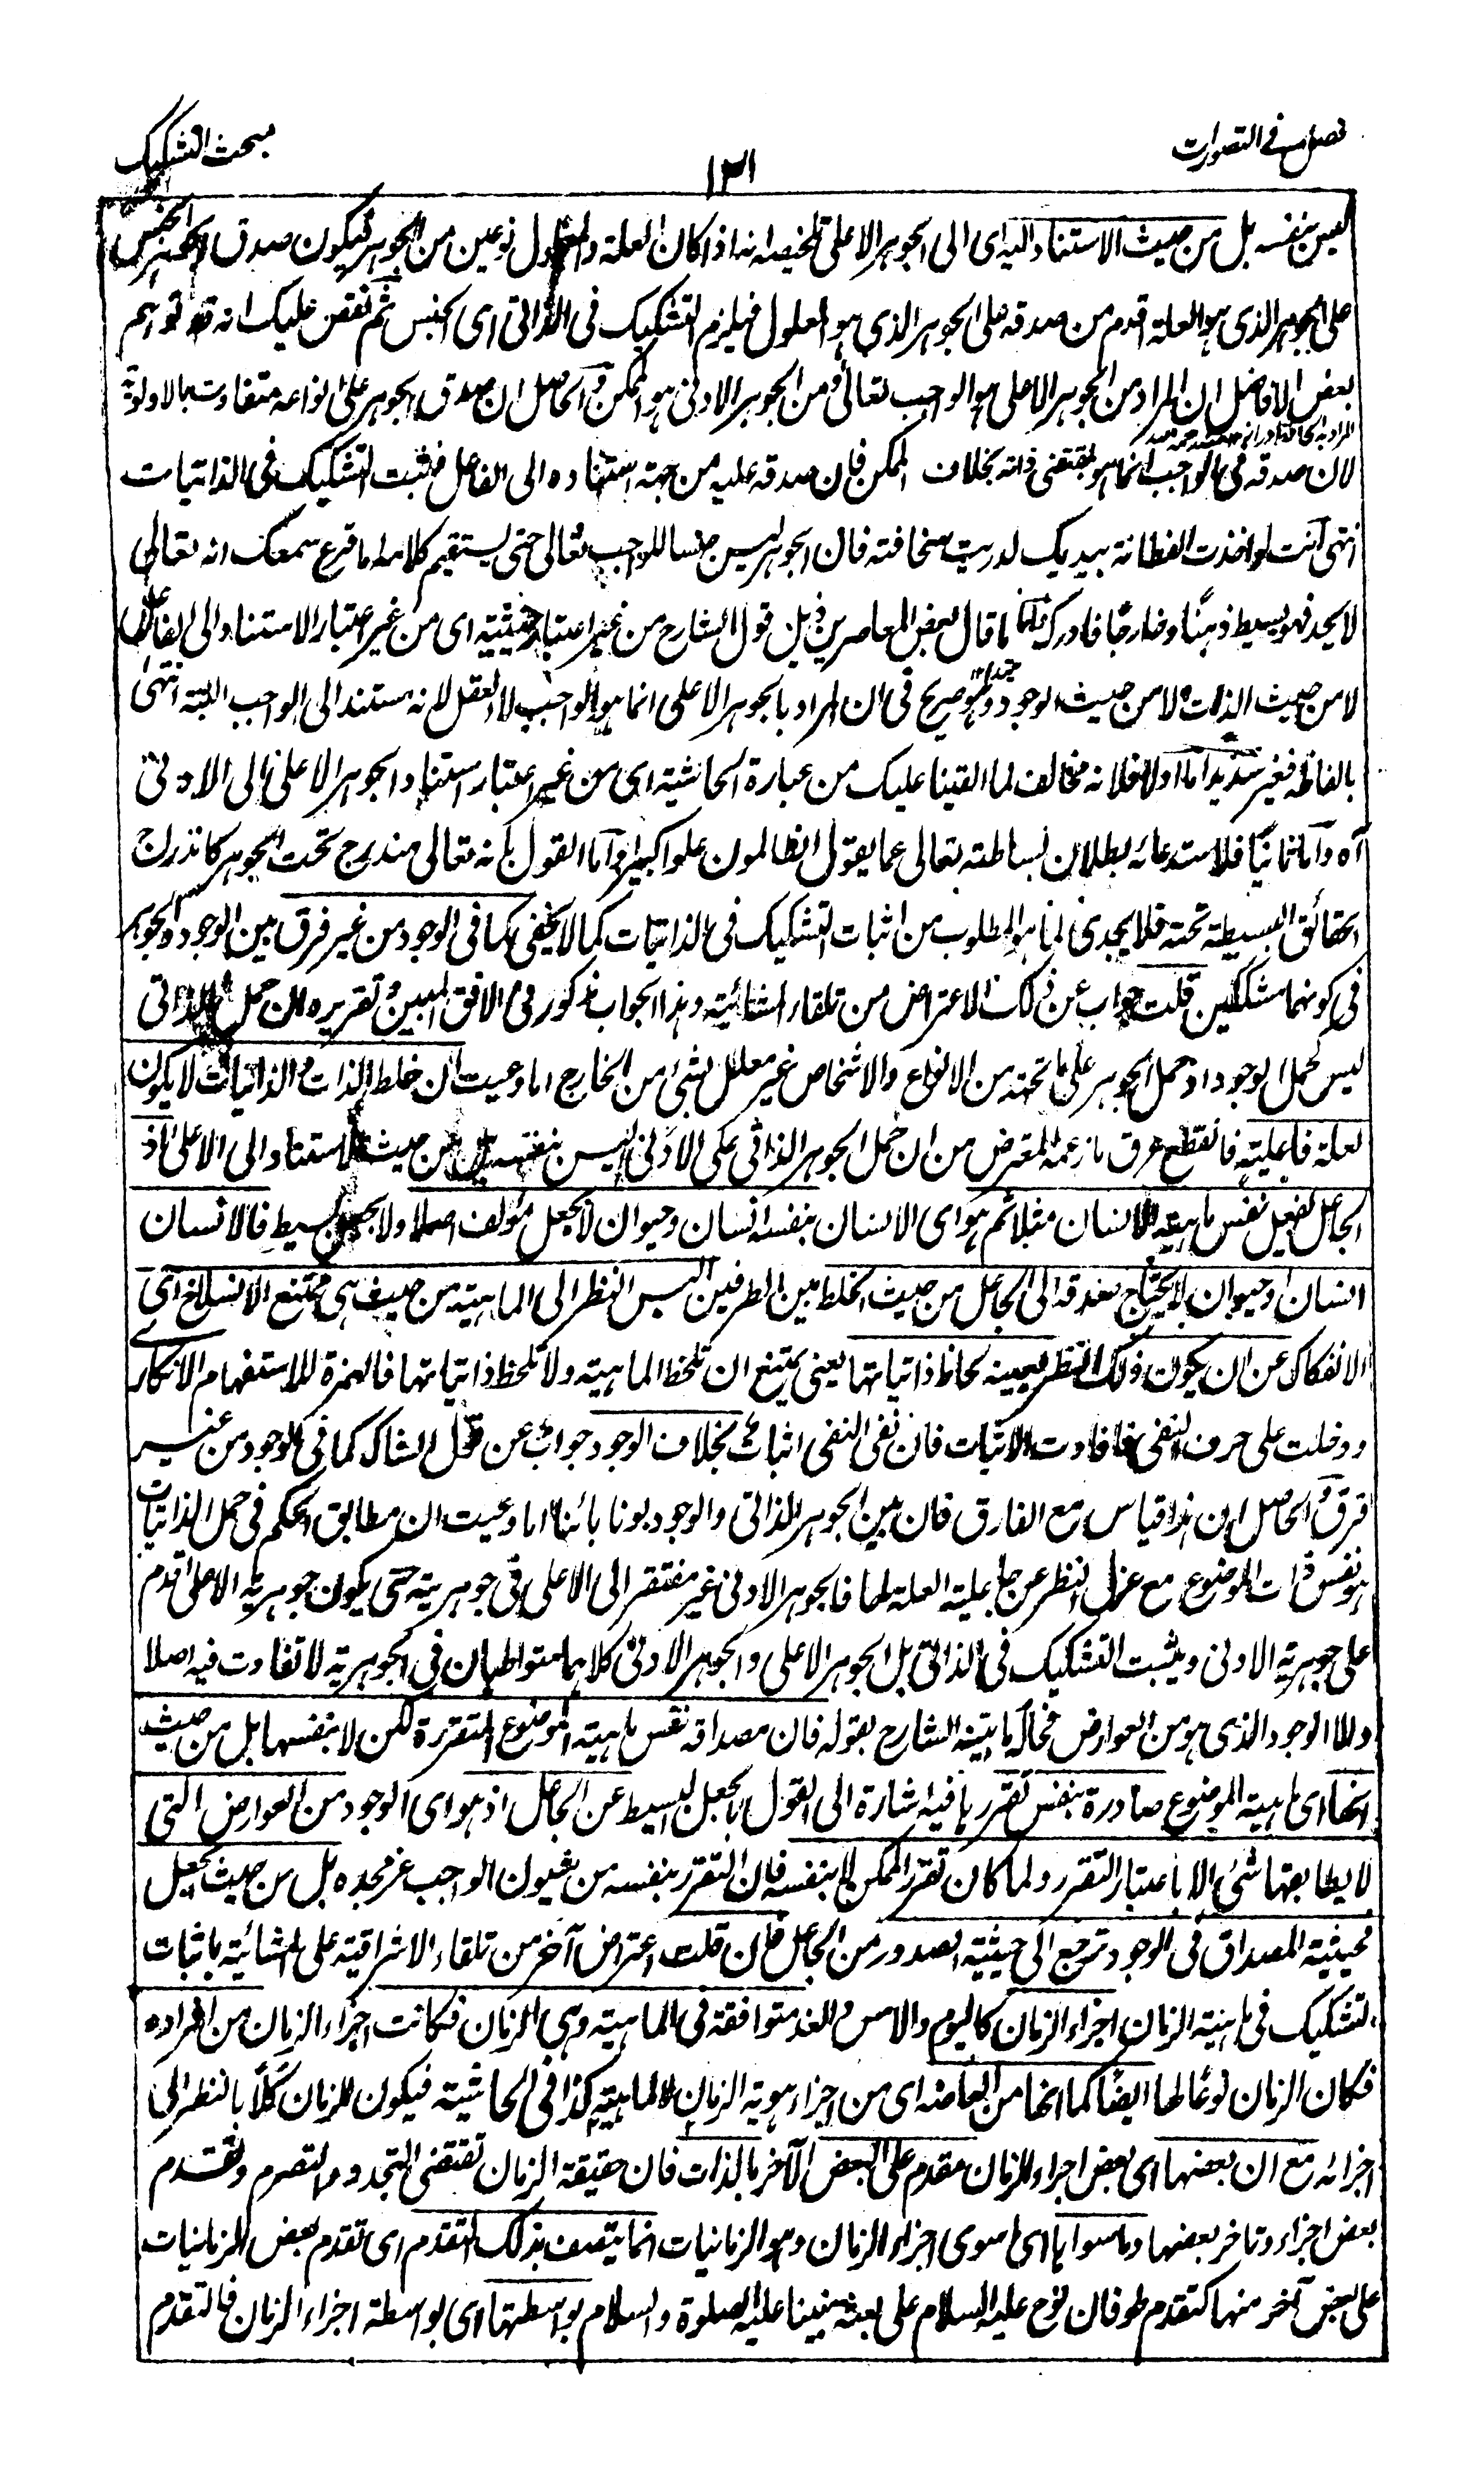 فصل في التصورات
١٣١
مبحث التشكيك
ليس بنفسه بل من حيث الاستناد اليه اى الى الجوهر الاعلى تلخيصه انه اذا كان العلة والمعلول نوعين من الجوهر فيكون صدق الجوهر الجنس
على الجوهر الذى هو العلة اقدم من صدقه على الجوهر الذي هو المعلول فيلزم التشكيك فى الذاتى اى الجنس ثم نقص عليك انه قد توهم
بعض الافاضل ان المراد من الجوهر الاعلى هو الواجب تعالى ومن الجوهر الادنى هو الممكن والحاصل ان صدق الجوهر على انواعه متفاوت بالاولوية
لان صدقه فى الواجب انما هو بمقتضى ذاته بخلاف الممكن فان صدقه عليه من جهة استناده الى الفاعل فيثبت التشكيك فى الذاتيات
انتهى انت لو اخذت الفطانة بيديك لدريت سخافته فان الجوهر ليس جنسا للواجب تعالى حتى يستقيم كلامه اما قرع سمعك انه تعالى
لا يحد فهو بسيط ذهنًا وخارجًا فادرك فما قال بعض المعاصرين فى ذيل قول الشارح من غير اعتبار حيثية اى من غير اعتبار الاستناد الى الفاعل
لا من حيث الذات ولا من حيث الوجود وهو صريح فى ان المراد بالجوهر الاعلى انما هو الواجب لا العقل لانه مستند الى الواجب البتة انتهى
بالفاظه فغير سديد اما اولا فلانه مخالف لما القينا عليك من عبارة الحاشية اى من غير اعتبار استناد الجوهر الاعلى الى الادنى
آه واما ثانيًا فلاستدعائه بطلان بساطته تعالى عما يقول الظالمون علوا كبيرا واما القول بانه تعالى مندرج تحت الجوهر كاندراج
الحقائق البسيطة تحته فلا يجدى لما هو المطلوب من اثبات التشكيك فى الذاتيات كما لا يخفى كما فى الوجود من غير فرق بين الوجود والجوهر
فى كونهما مشككين قلت جواب عن ذلك الاعتراض من تلقاء المشائية وهذا الجواب مذكور فى الافق المبين وتقريره ان حمل الذاتى
ليس كحمل الوجود اذ حمل الجوهر على ما تحته من الانواع والاشخاص غير معلل بشئ من الخارج اما وعيت ان خلط الذات والذاتيات لا يكون
لعلة فاعلية فانقطع عرق ما زعمه المعترض من ان حمل الجوهر الذاتى على الادنى ليس بنفسه بل من حيث الاستناد الى الاعلى اذ
الجاعل يفعل نفس ماهية الانسان مثلا ثم هو اى الانسان بنفسه انسان وحيوان لا بجعل مؤلف اصلا ولا بجعل بسيط فالانسان
انسان او حيوان لا يحتاج صدقه الى الجاعل من حيث الخلط بين الطرفين اليس النظر الى الماهية من حيث هى ممتنع الانسلاخ اى
الانفكاك عن ان يكون ذلك النظر بعينه لحاظ ذاتياتها يعنى يمتنع ان تلحظ الماهية ولا تلحظ ذاتياتها فالهمزة للاستفهام الانكارى
ودخلت على حرف النفى فافادت الاثبات فان نفى النفى اثبات بخلاف الوجود جواب عن قول الشاك كما فى الوجود من غير
فرق والحاصل ان هذا قياس مع الفارق فان بين الجوهر الذاتى والوجود بونا بائنا اما وعيت ان مطابق الحكم فى حمل الذاتيات
هو نفس ذات الموضوع مع عزل النظر عن جاعلية العلة لها فالجوهر الادنى غير مفتقر الى الاعلى فى جوهريته حتى يكون جوهرية الاعلى اقدم
على جوهرية الادنى ويثبت التشكيك فى الذاتى بل الجوهر الاعلى والجوهر الادنى كلاهما متواطيان فى الجوهرية لا تفاوت فيه اصلا
واما الوجود الذى هو من العوارض فحاله ما بينه الشارح بقوله فان مصداقه نفس ماهية الموضوع المتقررة لكن لا بنفسها بل من حيث
انها اى ماهية الموضوع صادرة بنفس تقررها فيه اشارة الى القول بالجعل البسيط عن الجاعل اذ هو اى الوجود من العوارض التى
لا يطابقها شئ الا باعتبار التقرر ولما كان تقرر الممكن لا بنفسه فان التقرر بنفسه من شيون الواجب عز مجده بل من حيث الجعل
فحيثية المصداق فى الوجود ترجع الى حيثية الصدور من الجاعل فان قلت اعتراض آخر من تلقاء الاشراقية على المشائية باثبات
التشكيك فى ماهية الزمان اجزاء الزمان كاليوم والامس والغد متوافقة فى الماهية وهى الزمان فكانت اجزاء الزمان من افراده
فكان الزمان نوعًا لها ايضًا كما انها من ابعاضه اى من اجزاء هوية الزمان لا لماهيته كذا فى الحاشية فيكون للزمان كلًا بالنظر الى
اجزائه مع ان بعضها اى بعض اجزاء الزمان مقدم على البعض الآخر بالذات فان حقيقة الزمان تقتضى التجدد والتصرم وتقدم
بعض اجزاء وتاخر بعضها وما سواها اى ما سوى اجزاء الزمان وهو الزمانيات انما يتصف بذلك التقدم اى تقدم بعض الزمانيات
على بعض آخر منها كتقدم طوفان نوح عليه السلام على بعثة نبينا عليه الصلوة والسلام بواسطتها اى بواسطة اجزاء الزمان فالتقدم